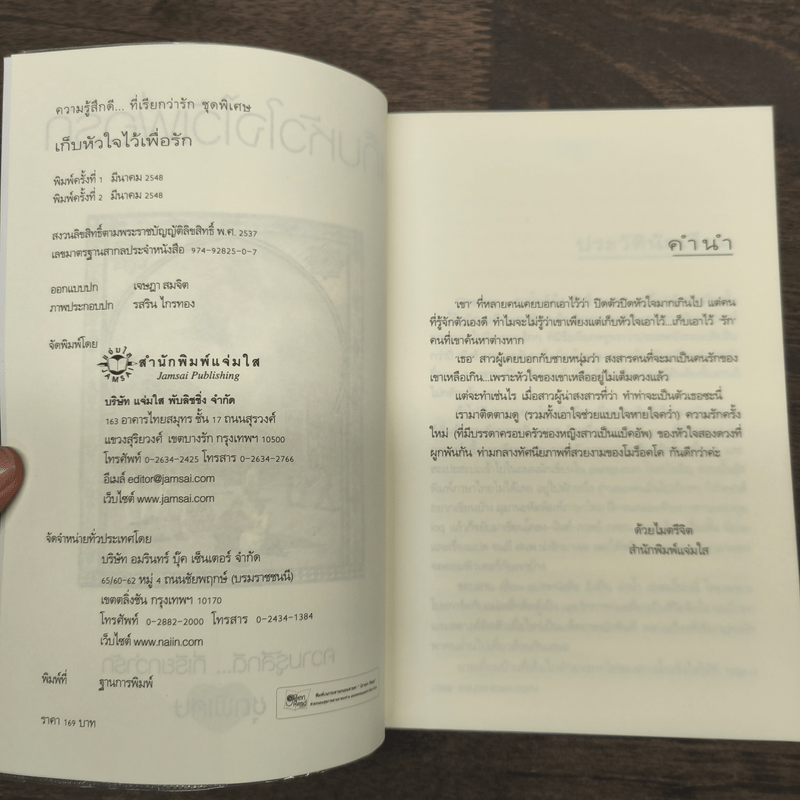 ความรู้สึกดี... ที่เรียกว่ารัก ชุดพิเศษ
เก็บหัวใจไว้เพื่อรัก
พิมพ์ครั้งที่ 1 มีนาคม 2548
พิมพ์ครั้งที่ 2 มีนาคม 2548
สงวนลิขสิทธิ์ตามพระราชบัญญัติลิขสิทธิ์ พ.ศ. 2537
เลขมาตรฐานสากลประจำหนังสือ 974-92825-0-7
ออกแบบปก เจษฎา สมจิต
ภาพประกอบปก รสริน ไกรทอง
จัดพิมพ์โดย
สำนักพิมพ์แจ่มใส
Jamsai Publishing
บริษัท แจ่มใส พับลิชชิ่ง จำกัด
163 อาคารไทยสมุทร ชั้น 17 ถนนสุรวงศ์
แขวงสุริยวงศ์ เขตบางรัก กรุงเทพฯ 10500
โทรศัพท์ 0-2634-2425 โทรสาร 0-2634-2766
อีเมล์ editor@jamsai.com
เว็บไซต์ www.jamsai.com
จัดจำหน่ายทั่วประเทศโดย
บริษัท อมรินทร์ บุ๊ค เซ็นเตอร์ จำกัด
65/60-62 หมู่ 4 ถนนชัยพฤกษ์ (บรมราชชนนี)
เขตตลิ่งชัน กรุงเทพฯ 10170
โทรศัพท์ 0-2882-2000 โทรสาร 0-2434-1384
เว็บไซต์ www.naiin.com
พิมพ์ที่ ฐานการพิมพ์
ราคา 169 บาท
คำนำ
'เขา' ที่หลายคนเคยบอกเอาไว้ว่า ปิดตัวปิดหัวใจมากเกินไป แต่คน
ที่รู้จักตัวเองดี ทำไมจะไม่รู้ว่าเขาเพียงแต่เก็บหัวใจเอาไว้...เก็บเอาไว้ 'รัก'
คนที่เขาค้นหาต่างหาก
'เธอ' สาวผู้เคยบอกกับชายหนุ่มว่า สงสารคนที่จะมาเป็นคนรักของ
เขาเหลือเกิน...เพราะหัวใจของเขาเหลืออยู่ไม่เต็มดวงแล้ว
แต่จะทำเช่นไร เมื่อสาวผู้น่าสงสารที่ว่า ทำท่าจะเป็นตัวเธอซะนี่
เรามาติดตามดู (รวมทั้งเอาใจช่วยแบบใจหายใจคว่ำ) ความรักครั้ง
ใหม่ (ที่มีบรรดาครอบครัวของหญิงสาวเป็นแบ็คอัพ) ของหัวใจสองดวงที่
ผูกพันกัน ท่ามกลางทัศนียภาพที่สวยงามของโมร็อคโค กันดีกว่าค่ะ
ด้วยไมตรีจิต
สำนักพิมพ์แจ่มใส